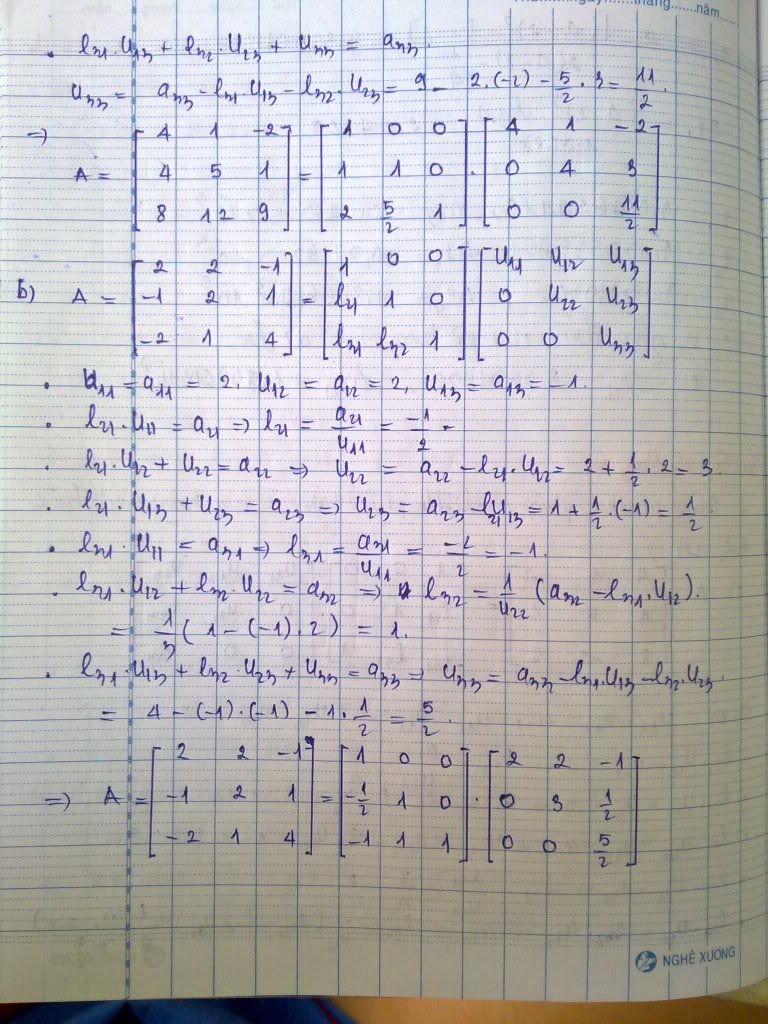 ngày......tháng......năm......
. l₃₁.U₁₃ + l₃₂.U₂₃ + U₃₃ = a₃₃.
U₃₃ = a₃₃ - l₃₁.U₁₃ - l₃₂.U₂₃ = 9 - 2.(-2) - 5/2 . 3 = 11/2.
=> A = [4 1 -2; 4 5 1; 8 12 9] = [1 0 0; 1 1 0; 2 5/2 1] . [4 1 -2; 0 4 3; 0 0 11/2]
b) A = [2 2 -1; -1 2 1; -2 1 4] = [1 0 0; l₂₁ 1 0; l₃₁ l₃₂ 1] [U₁₁ U₁₂ U₁₃; 0 U₂₂ U₂₃; 0 0 U₃₃]
. U₁₁ = a₁₁ = 2, U₁₂ = a₁₂ = 2, U₁₃ = a₁₃ = -1.
. l₂₁.U₁₁ = a₂₁ => l₂₁ = a₂₁/U₁₁ = -1/2
. l₂₁.U₁₂ + U₂₂ = a₂₂ => U₂₂ = a₂₂ - l₂₁.U₁₂ = 2 + 1/2 . 2 = 3.
. l₂₁.U₁₃ + U₂₃ = a₂₃ => U₂₃ = a₂₃ - l₂₁U₁₃ = 1 + 1/2 .(-1) = 1/2.
. l₃₁.U₁₁ = a₃₁ => l₃₁ = a₃₁/U₁₁ = -2/2 = -1.
. l₃₁.U₁₂ + l₃₂.U₂₂ = a₃₂ => l₃₂ = 1/U₂₂ (a₃₂ - l₃₁.U₁₂).
= 1/3 (1 - (-1).2) = 1.
. l₃₁.U₁₃ + l₃₂.U₂₃ + U₃₃ = a₃₃ => U₃₃ = a₃₃ - l₃₁.U₁₃ - l₃₂.U₂₃.
= 4 - (-1).(-1) - 1 . 1/2 = 5/2.
=> A = [2 2 -1; -1 2 1; -2 1 4] = [1 0 0; -1/2 1 0; -1 1 1] . [2 2 -1; 0 3 1/2; 0 0 5/2]
NGHÊ XƯƠNG